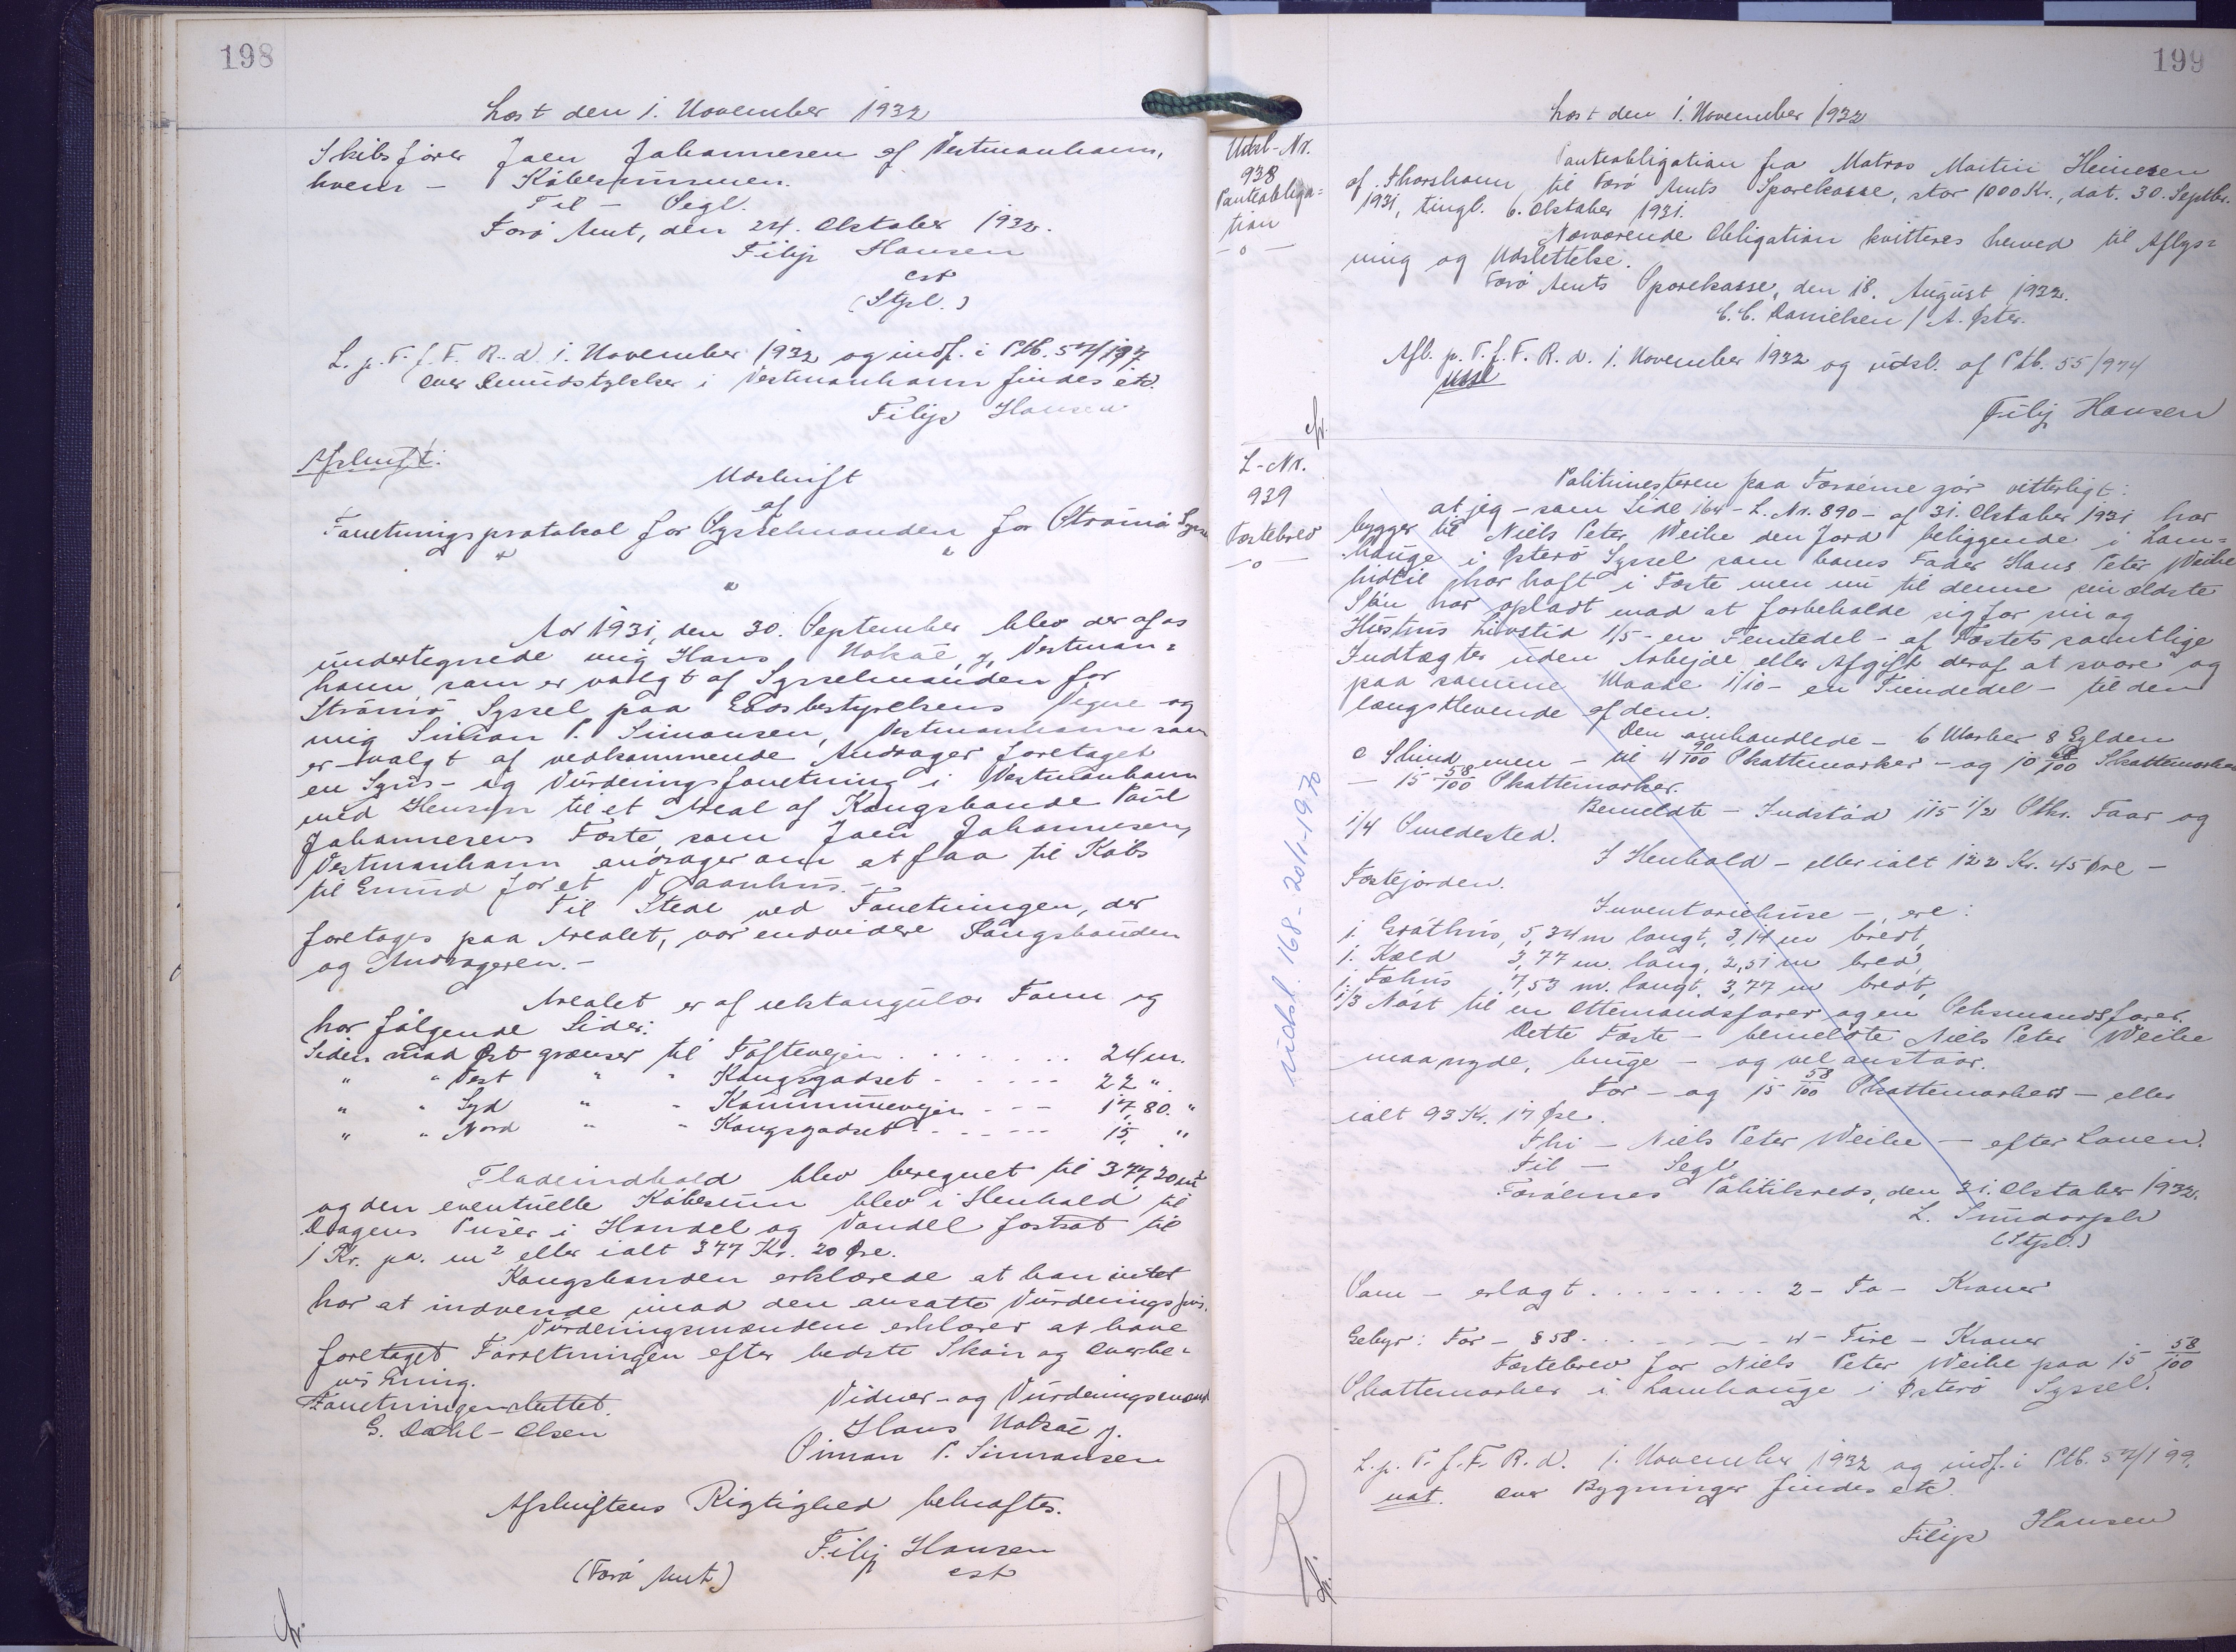 198
Læst den 1. November 1932
Skibsfører Joen Johannesen af Vestmanhavn,
hvem – Købesummen.
Til – Segl.
Færø Amt, den 24. Oktober 1932.
Filip Hansen
cst
(Stpl.)
L. p. T. f. F. R. d. 1. November 1932 og indf. i Ptb. 57/197
Over Grundstykker i Vestmanhavn findes etc.
Filip Hansen
Afskrift:
Udskrift
af
Forretningsprotokol for Sysselmanden for Strømø Syssel
" " "
Aar 1931, den 30. September blev der af os
undertegnede mig Hans Nolsøe, j. Vestman=
havn, som er valgt af Sysselmanden for
Strømø Syssel paa Godsbestyrelsens Vegne og
mig Simon P. Simonsen, Vestmanhavn som
er valgt af vedkommende Andrager foretaget
en Syns- og Vurderingsforretning i Vestmanhavn
med Hensyn til et Areal af Kongsbonde Poul
Johannesens Fæste som Joen Johannesen,
Vestmanhavn andrager om at faa til Købs
til Grund for et Vaanhus. –
Til Stede ved Forretningen, der
foretages paa Arealet, var endvidere Kongsbonden
og Andrageren. –
Arealet er af rektangulær Form og
har følgende Sider:
Siden mod Øst grænser til Toftevejen . . . . . . . 24 m.
" " Vest " " Kongsgodset - . - - - - 22 ".
" " Syd " " Kommunevejen - - - 17,80. "
" " Nord " " Kongsgodset - - - - - - 15, "
Fladeindhold blev beregnet til 377,20 m²
og den eventuelle Købesum blev i Henhold til
Dagens Priser i Handel og Vandel fastsat til
1 Kr. pr. m² eller ialt 377 Kr. 20 Øre.
Kongsbonden erklærede at han intet
har at indvende imod den ansatte Vurderingspris.
Vurderingsmændene erklærer at have
foretaget Forretningen efter bedste Skøn og Overbe-
visning.
Forretningen sluttet.
G. Dahl-Olsen
Vidner- og Vurderingsmænd
Hans Nolsøe j.
Simon P. Simonsen
Afskriftens Rigtighed bekræftes.
Filip Hansen
cst
(Færø Amt)
199
Læst den 1. November 1932
Udsl-Nr.
938
Panteobliga=
tion
– o –
Panteobligation fra Matros Martin Heinesen
af Thorshavn til Færø Amts Sparekasse, stor 1000 Kr., dat. 30. Septbr.
1931, tingl. 6. Oktober 1931.
Nærværende Obligation kvitteres herved til Aflys=
ning og Udslettelse.
Færø Amts Sparekasse, den 18. August 1932.
C. C. Danielsen / A. Øster.
Afl. p. T. f. F. R. d. 1. November 1932 og udsl. af Ptb. 55/974
udsl
Filip Hansen
L-Nr.
939
Fæstebrev
– o –
Politimesteren paa Færøerne gør vitterligt:
at jeg – som Side 164 – L. Nr. 890 – af 31. Oktober 1931 har
bygger til Niels Peter Weihe den Jord beliggende i Lam=
hauge i Østerø Syssel som hans Fader Hans Peter Weihe
hidtil har haft i Fæste men nu til denne sin ældste
Søn har opladt mod at forbeholde sig for sin og
Hustrus Livstid 1/5 – en Femtedel – af Fæstets samtlige
Indtægter uden Arbejde eller Afgift deraf at svare og
paa samme Maade 1/10 – en Tiendedel – til den
længstlevende af dem.
Den omhandlede – 6 Marker 8 Gylden
0 Skind men – til 4 90/100 Skattemarker – og 10 68/100 Skattemarker
– 15 58/100 Skattemarker.
Bemeldte – Indstød 115 1/2 Stkr. Faar og
1/4 Smedested.
I Henhold – eller ialt 122 Kr. 45 Øre –
Fæstejorden.
Inventariehuse – , ere:
1. Gráthus, 5,34 m langt, 3,14 m bredt,
1. Kæld 3,77 m. lang, 2,51 m bred,
1. Fæhus 7,53 m. langt, 3,77 m bredt,
1/3 Nøst til en Ottemandsfarer og en Seksmandsfarer.
Dette Fæste – bemeldte Niels Peter Weihe
maa nyde, bruge – og vel anstaar.
For – og 15 58/100 Skattemarkers – eller
ialt 93 Kr. 17 Øre.
Thi – Niels Peter Weihe – efter Loven.
Til – Segl.
Færøernes Politikreds, den 31. Oktober 1932.
L. Sundorph
(Stpl.)
Som – erlagt . . . . . . . . 2 – To – Kroner
Gebyr: For – § 58. . - - - - - 4 – Fire – Kroner
Fæstebrev for Niels Peter Weihe paa 15 58/100
Skattemarker i Lamhauge i Østerø Syssel.
L. p. T. f. F. R. d. 1. November 1932 og indf. i Ptb. 57/199.
not. Over Bygninger findes etc.
Filip Hansen
udsl. 168 - 20/1-1970